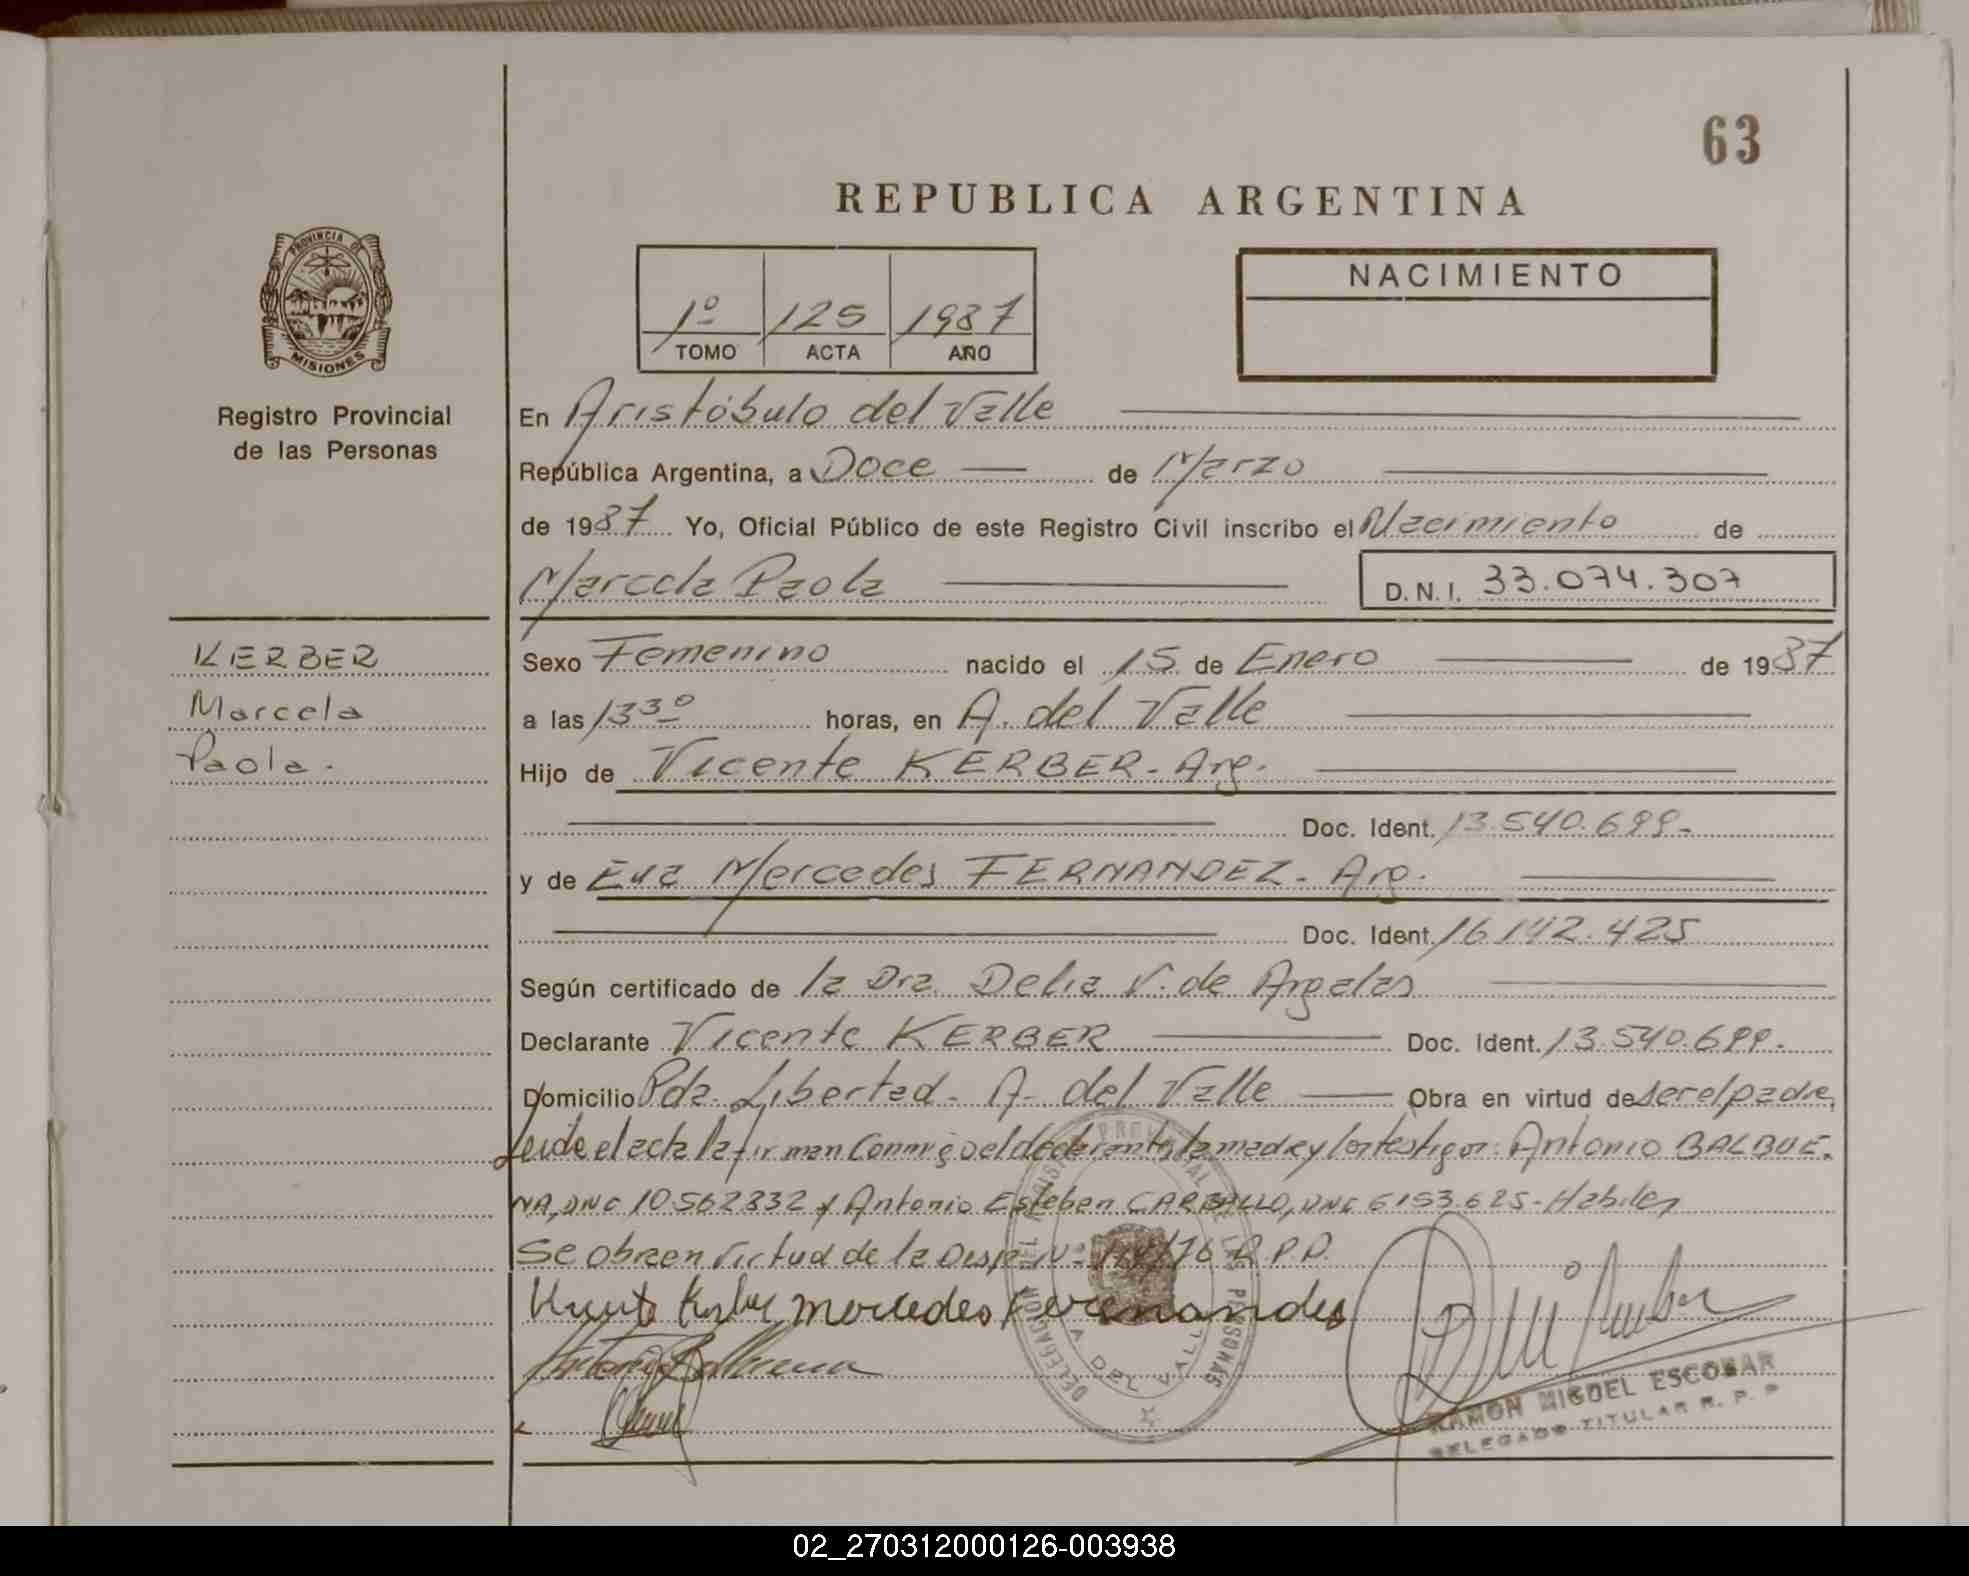 63
REPUBLICA ARGENTINA
PROVINCIA DE
MISIONES
Registro Provincial
de las Personas
1º 125 1987
TOMO ACTA AÑO
NACIMIENTO
En Aristóbulo del Valle
República Argentina, a Doce de Marzo
de 1987 Yo, Oficial Público de este Registro Civil inscribo el Nacimiento de
Marcela Paola D.N.I. 33.074.307
KERBER
Marcela
Paola.
Sexo Femenino nacido el 15 de Enero de 1987
a las 13³⁰ horas, en A. del Valle
Hijo de Vicente KERBER - Arg.
Doc. Ident. 13.540.699.
y de Eva Mercedes FERNANDEZ - Arg.
Doc. Ident. 16.142.425
Según certificado de la Dra. Delia V. de Argelas
Declarante Vicente KERBER Doc. Ident. 13.540.699.
Domicilio Pda. Libertad - A. del Valle Obra en virtud de ser el padre,
Leída el acta la firman conmigo el declarante, la madre y los testigos: Antonio BALBUE.
NA, DNI 10562832 y Antonio Esteban CARBALLO, DNI 6153.625 - Habiles
Se obra en virtud de la Disp. Nº /76 R.P.P.
Mercedes Fernandes
Antonio Balbuena
DELEGACION DEL REGISTRO PROVINCIAL DE LAS PERSONAS
A. DEL VALLE
RAMON MIGUEL ESCOBAR
DELEGADO TITULAR R. P. P.
02_270312000126-003938